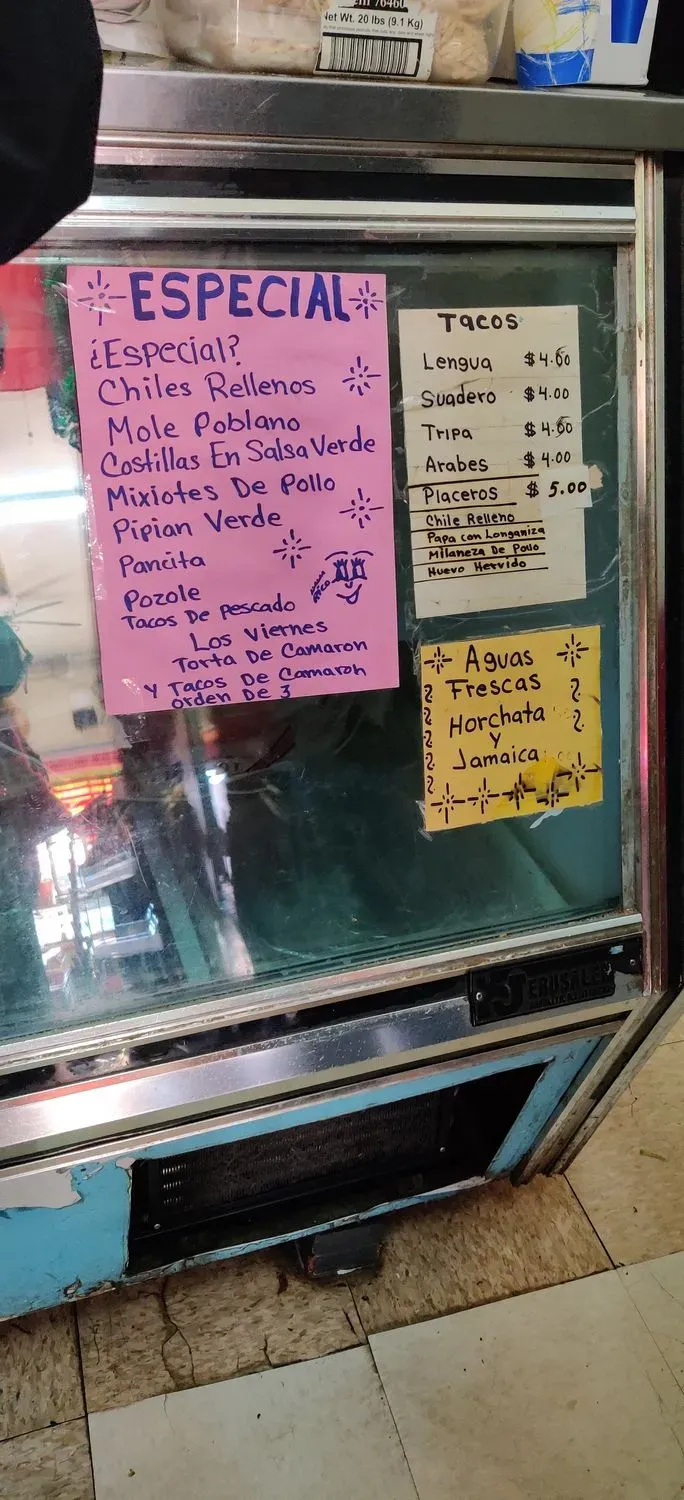 Net Wt. 20 lbs (9.1 Kg)
ESPECIAL
¿Especial?
Chiles Rellenos
Mole Poblano
Costillas En Salsa Verde
Mixiotes De Pollo
Pipian Verde
Pancita
Pozole
Tacos De Pescado
Los Viernes
Torta De Camaron
Y Tacos De Camaron
orden De 3
Tacos
Lengua $4.00
Suadero $4.00
Tripa $4.00
Arabes $4.00
Placeros $5.00
Chile Relleno
Papa con Longaniza
Milaneza De Pollo
Huevo Hervido
Aguas
Frescas
Horchata
Y
Jamaica
JERUSALEM